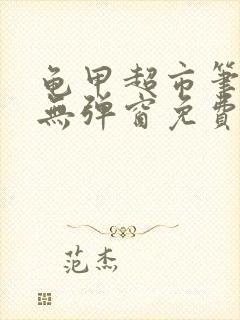 龟甲超市筆
無弹窗免費
范杰